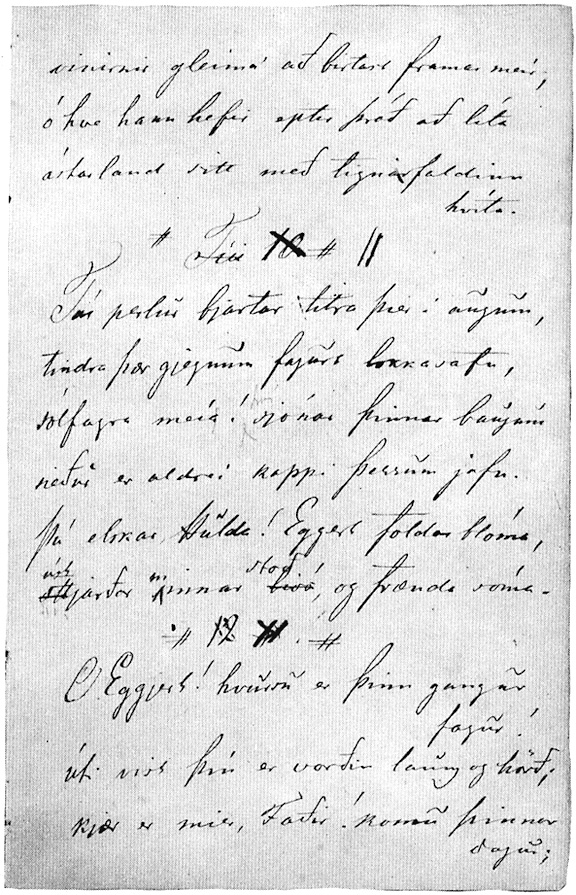 vinirnir gleima að birtast framar meir;
ó hve hann hefir eptir þráð að líta
ástarland sitt með tignarfaldinn
hvíta.
11
Tár perlur bjartar titra þier í augum,
tindra þær gjegnum fagurt lokkasafn,
sólfagra meia! sjónar þinnar baugum
reður er aldrei kappi þessum jafn.
Þú elskar, Hulda! Eggert foldar blóma,
ættjarðar minnar stoð, og frænda sóma.
12
O Eggert! hvursu er þinn gangur
fagur!
úti vist þín er vorðin laung og hörð;
kjær er mier, Faðir! komu þinnar
dagur;